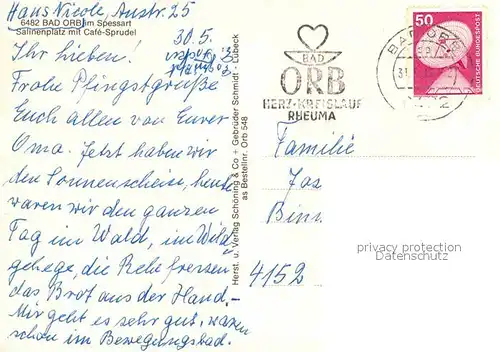 Haus Nicole, Austr. 25
6482 BAD ORB im Spessart
Salinenplatz mit Café-Sprudel
30.5.
Ihr Lieben!
Frohe Pfingstgrüße
Euch allen von Eurer
Oma. Jetzt haben wir
den Sonnenschein, heute
waren wir den ganzen
Tag im Wald, im Wild
gehege, die Rehe fressen
das Brot aus der Hand.
Mir geht es sehr gut, waren
schon im Bewegungsbad.
Herst. u. Verlag Schöning & Co + Gebrüder Schmidt · Lübeck
as Bestellnr. Orb 548
BAD
ORB
HERZ-KREISLAUF
RHEUMA
BAD ORB
50
DEUTSCHE BUNDESPOST
Familie
Jos
4152
privacy protection
Datenschutz